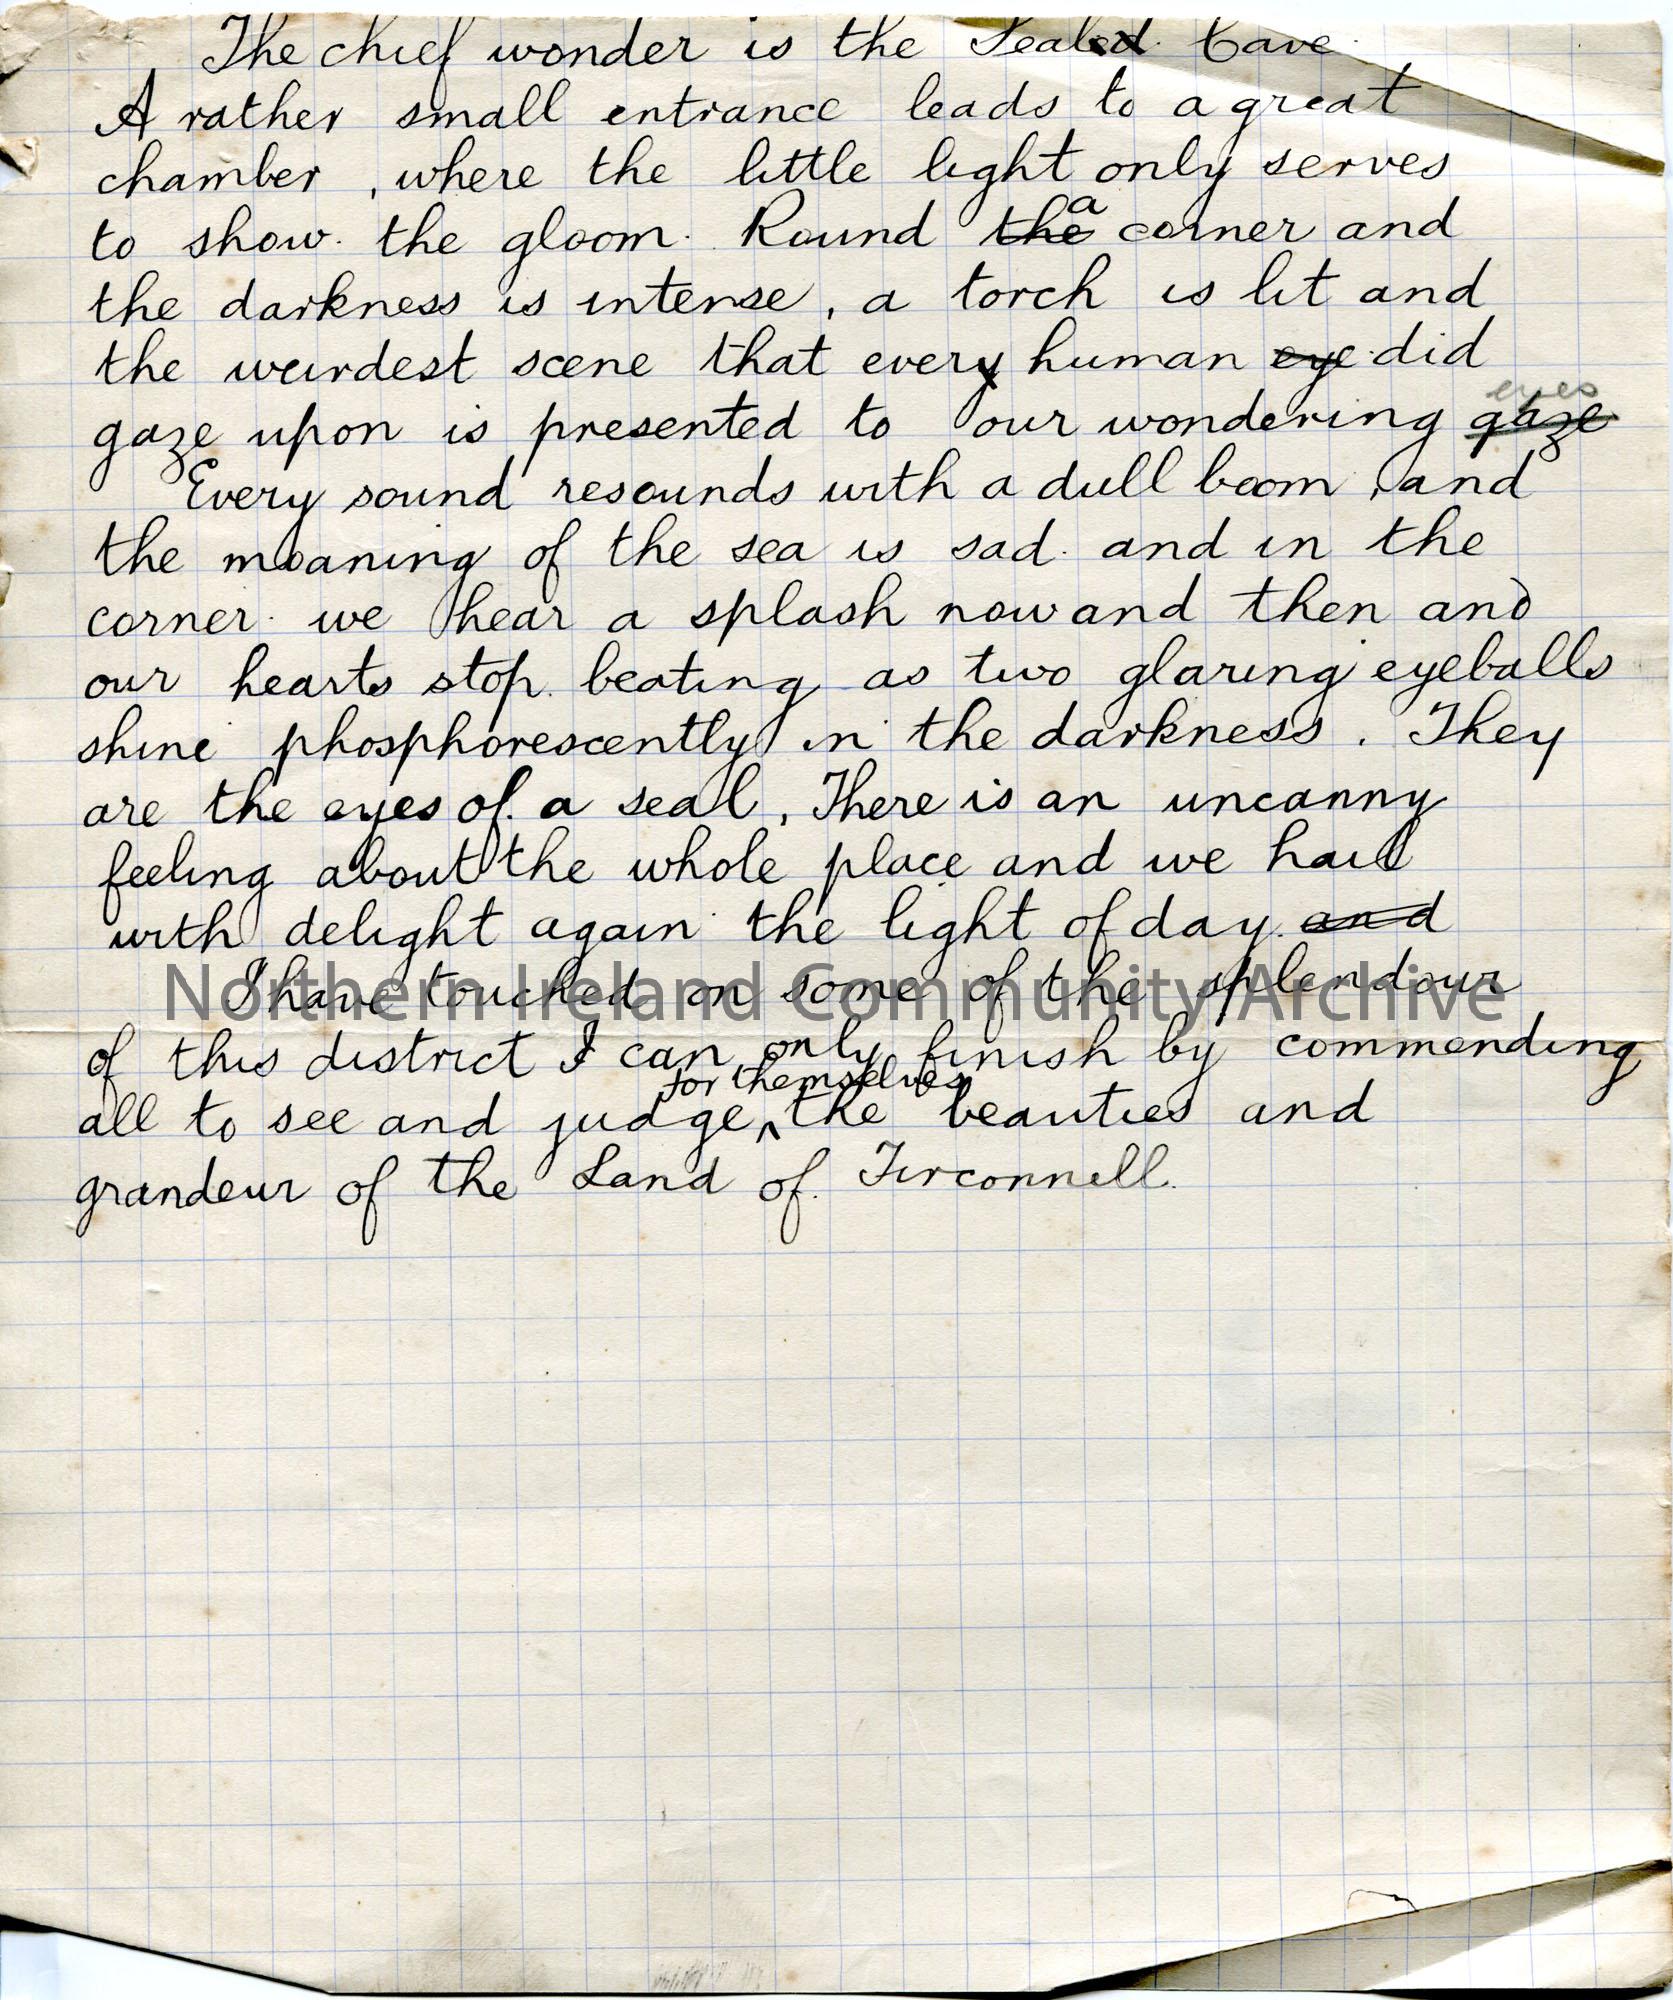 The chief wonder is the Seal Cave.
A rather small entrance leads to a great
chamber, where the little light only serves
to show. the gloom. Round a corner and
the darkness is intense, a torch is lit and
the weirdest scene that ever human did
gaze upon is presented to our wondering eyes
Every sound resounds with a dull boom, and
the moaning of the sea is sad. and in the
corner. we hear a splash now and then and
our hearts stop. beating as two glaring eyeballs
shine phosphorescently in the darkness. They
are the eyes of. a seal. There is an uncanny
feeling about the whole place and we hail
with delight again the light of day.
I have touched on some of the splendour
of this district I can only finish by commending
all to see and judge, for themselves the beauties and
grandeur of the Land of. Tirconnell.
Northern Ireland Community Archive